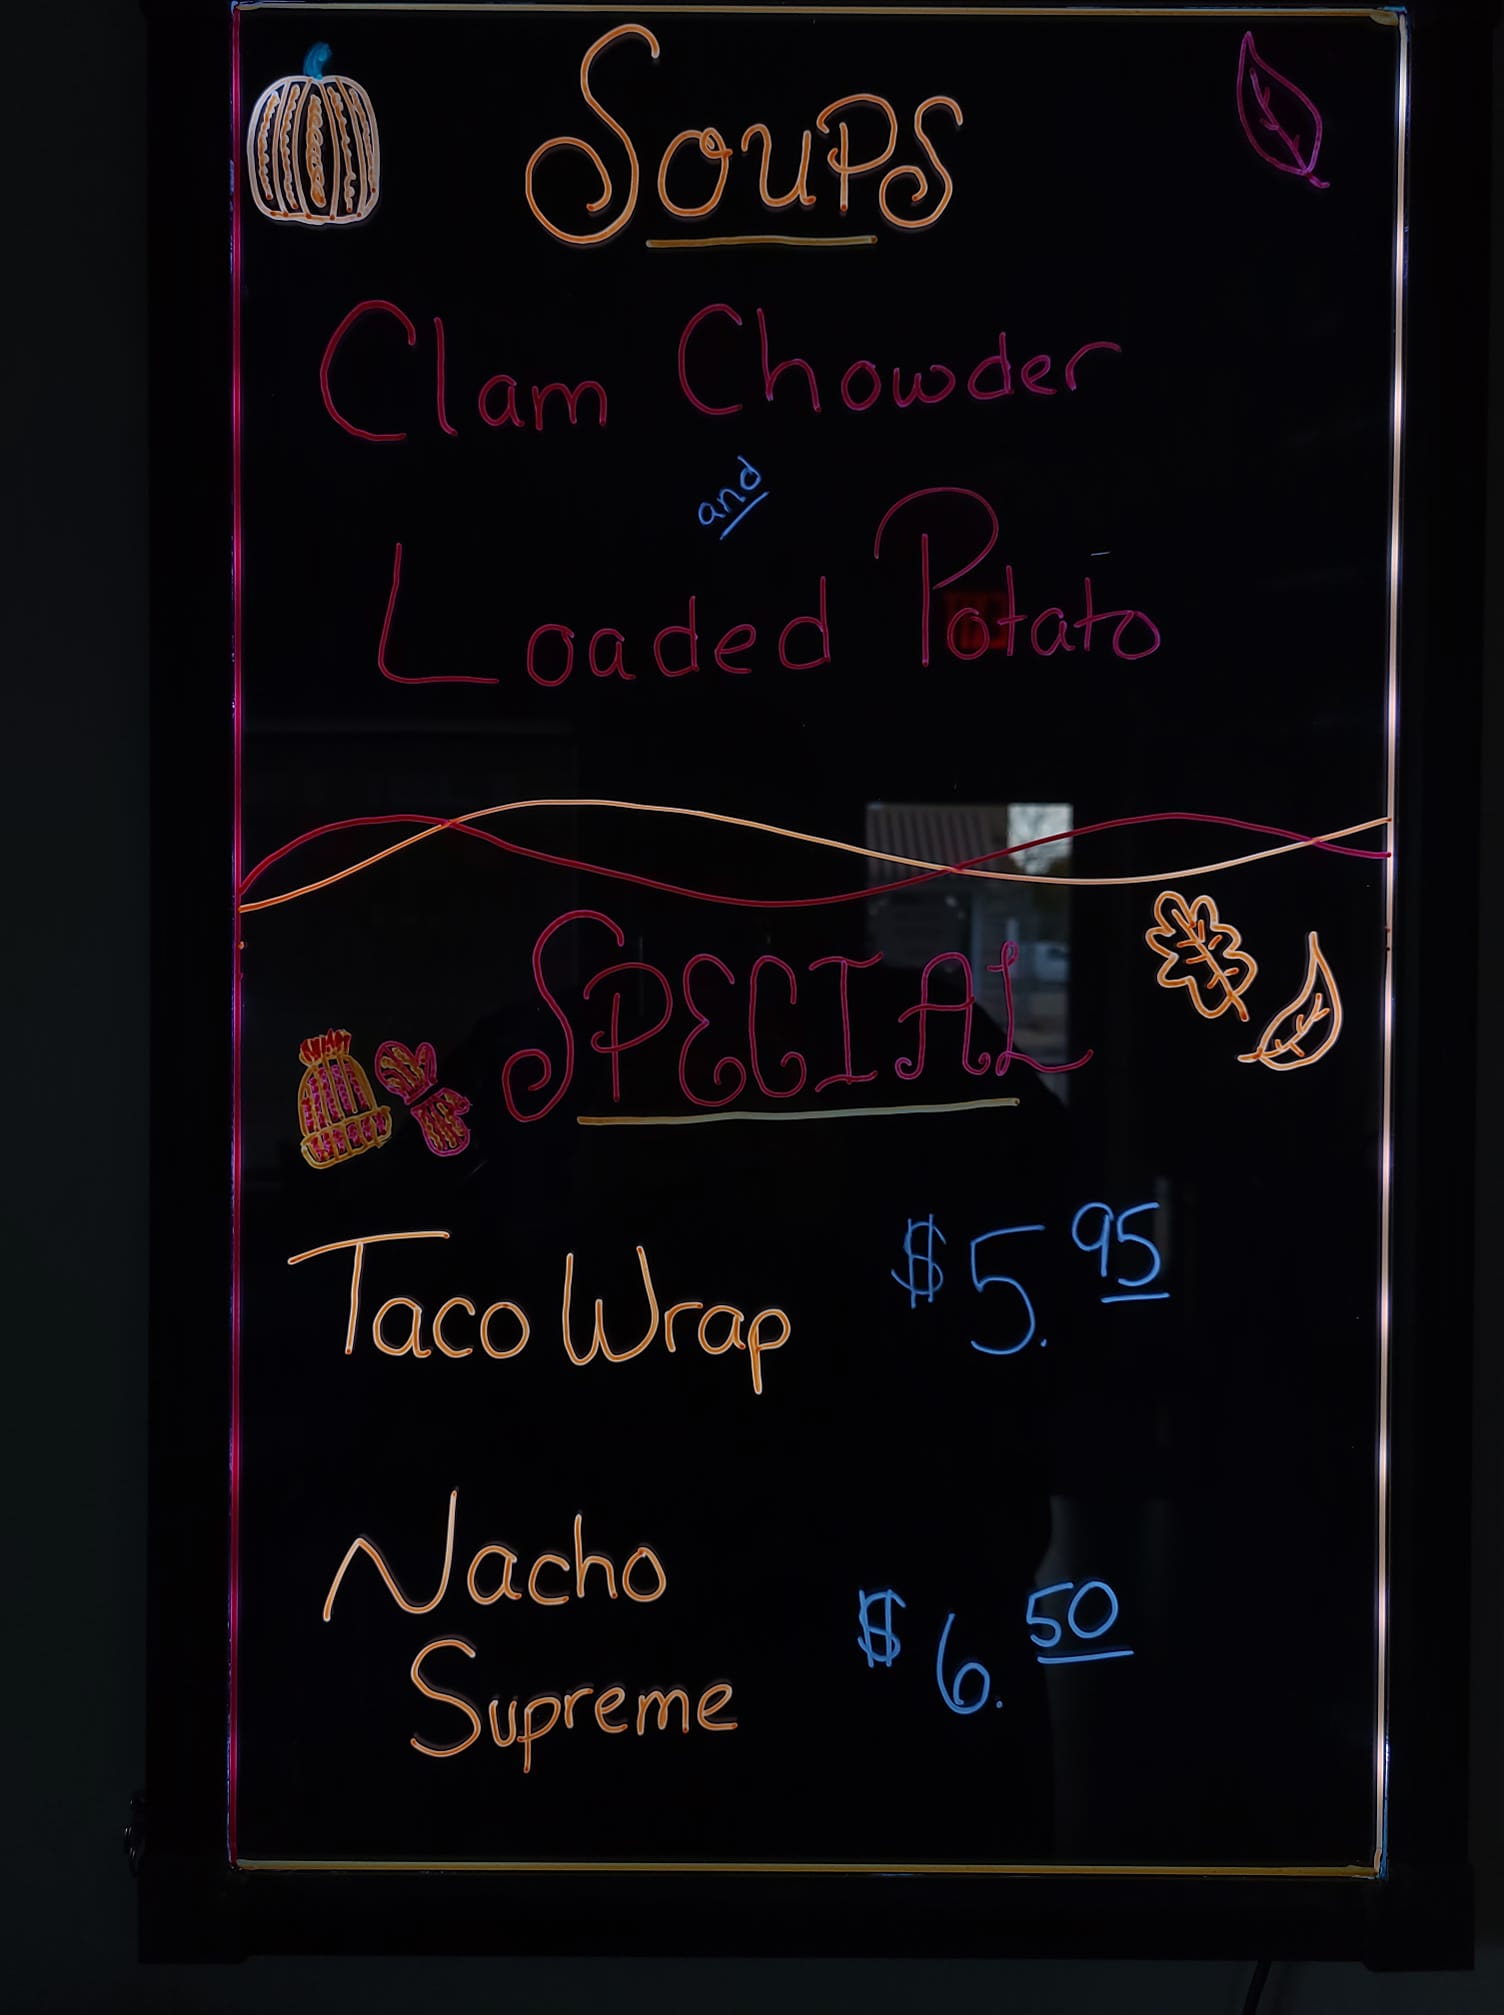 Soups
Clam Chowder
and
Loaded Potato
SPECIAL
Taco Wrap $5.95
Nacho
Supreme $6.50